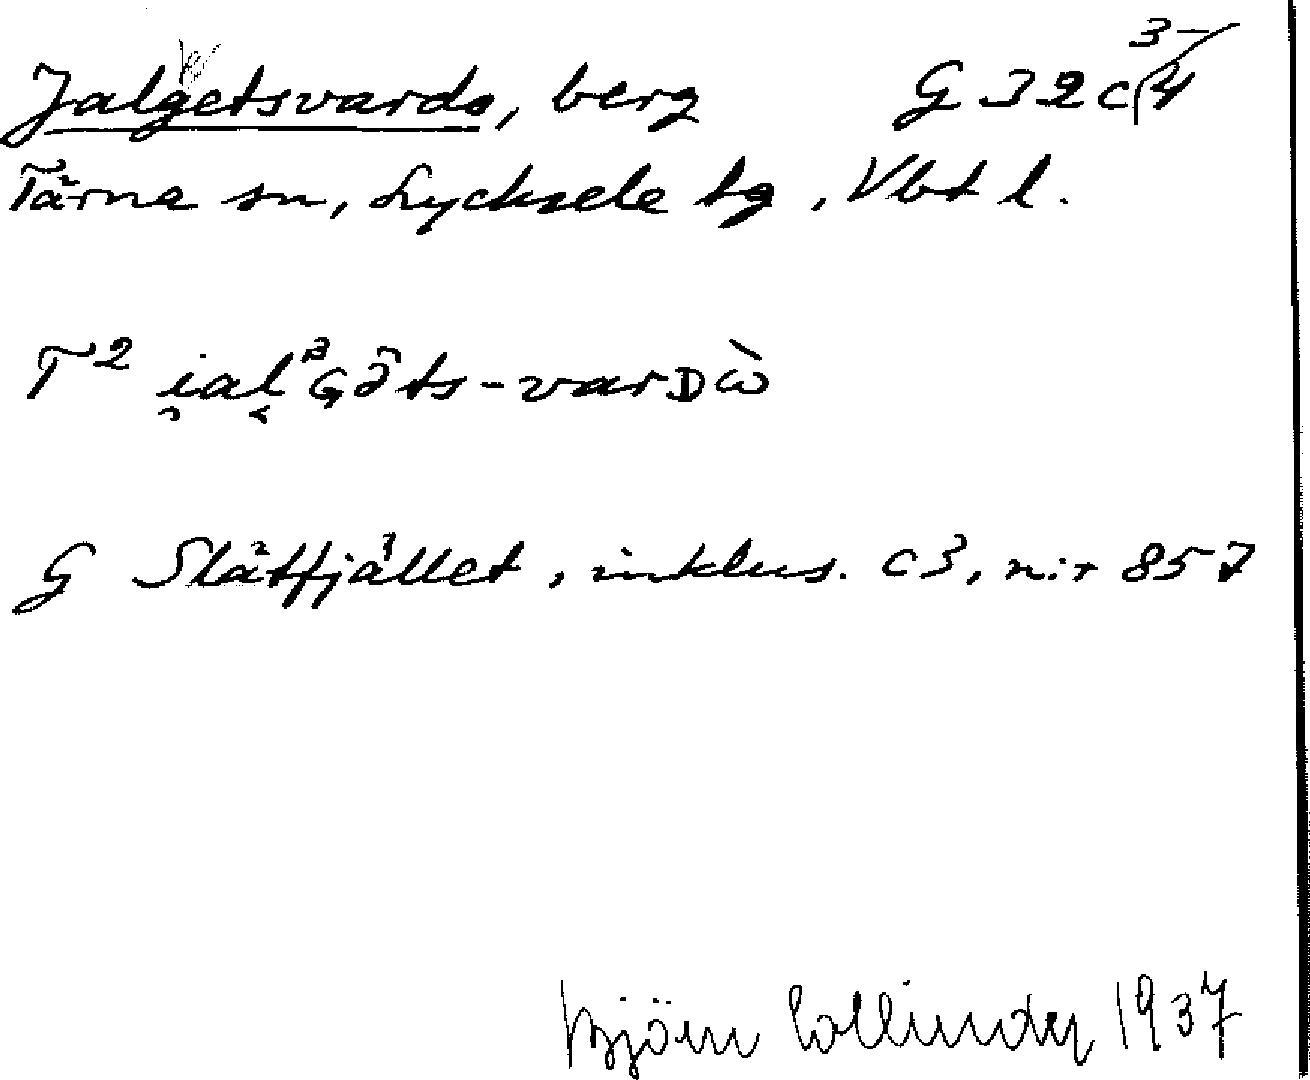 Jalgetsvardo, berg G 32 c 3-4
Tärna sn, Lycksele lg, Vbt l.
T² i̯al
G Slätfjället, inklus. c3, n:r 857
Björn Collinder 1937